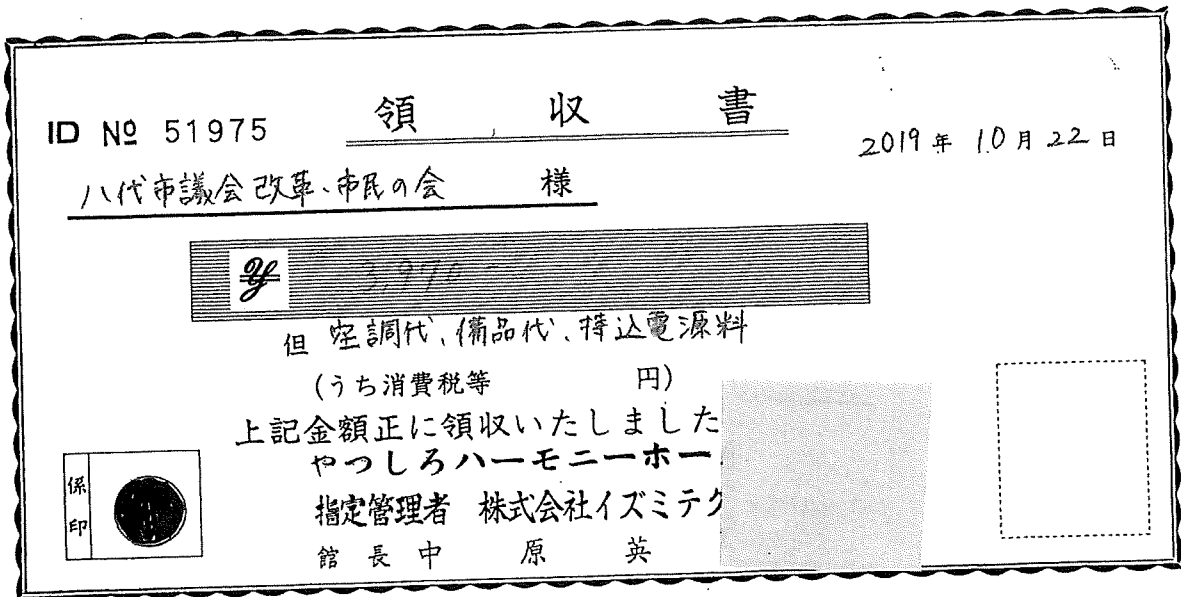 領収書
ID № 51975
2019年 10月 22日
八代市議会改革・市民の会 様
¥ 3,970-
但 空調代、備品代、持込電源料
(うち消費税等 円)
上記金額正に領収いたしました
やつしろハーモニーホー
指定管理者 株式会社イズミテク
館長 中原 英
係印